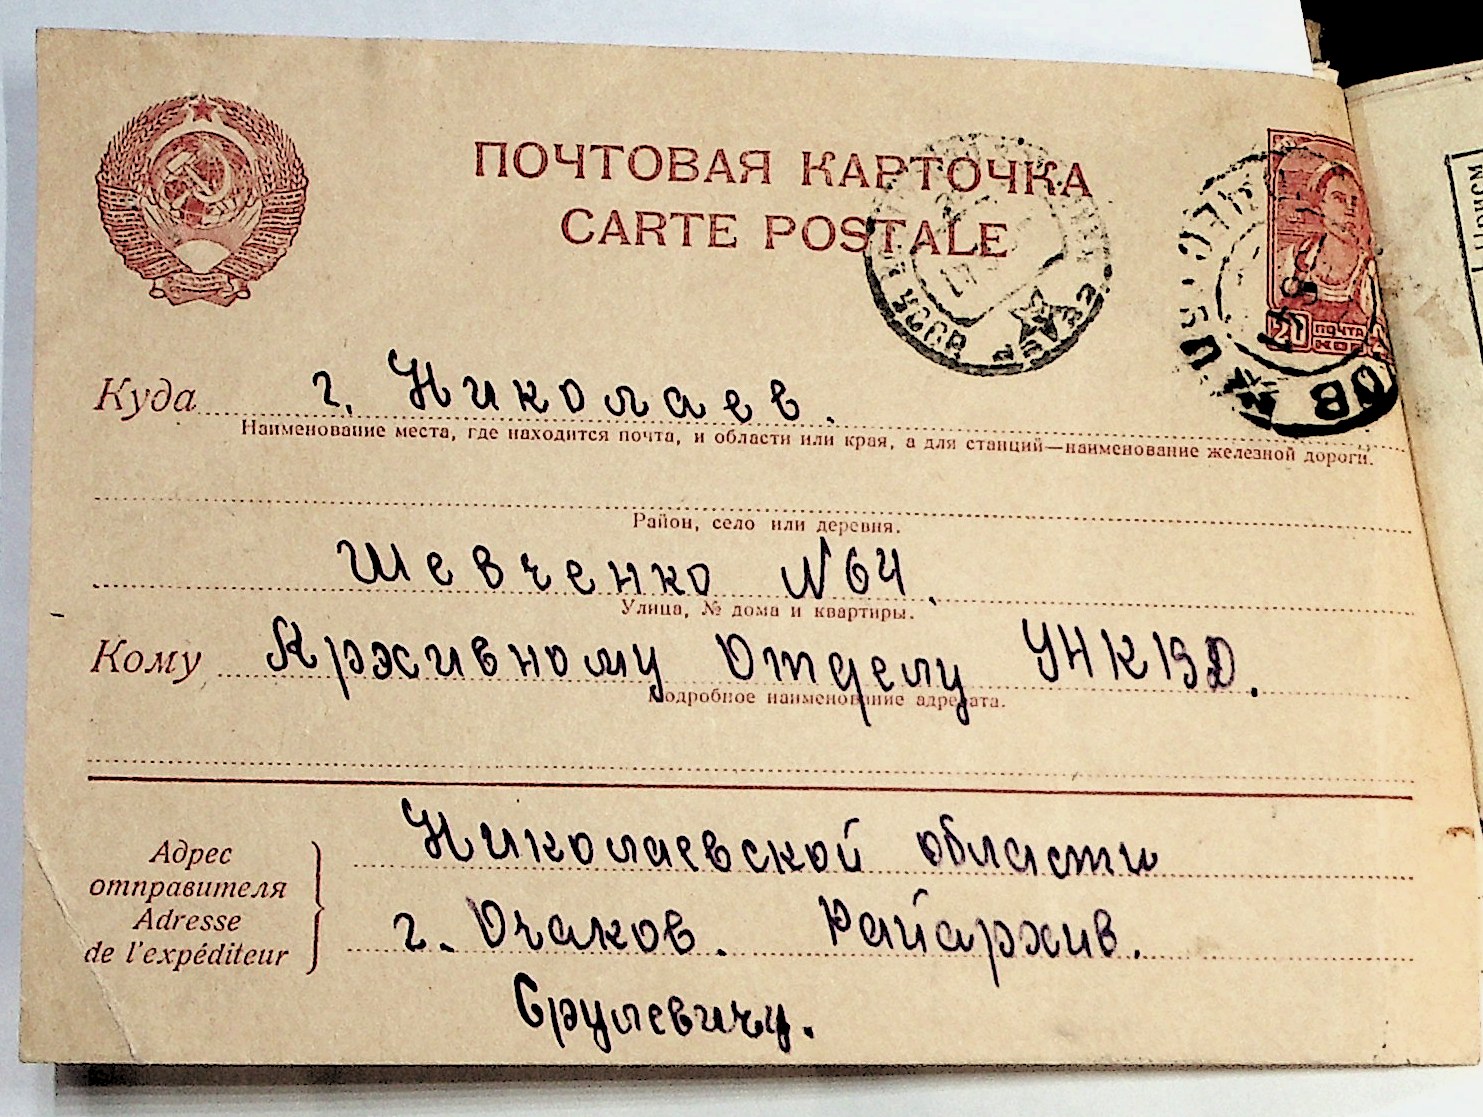 ПОЧТОВАЯ КАРТОЧКА
CARTE POSTALE
УССР
20 ПОЧТА
КОП
Куда г. Николаев.
Наименование места, где находится почта, и области или края, а для станций—наименование железной дороги.
Район, село или деревня.
Шевченко №64.
Улица, № дома и квартиры.
Кому Архивному Отделу УНКВД.
Подробное наименование адресата.
Адрес
отправителя
Adresse
de l'expéditeur
Николаевской области
г. Очаков. Райархив.
Срулевичу.